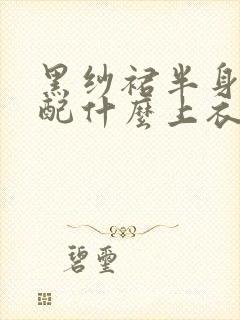 黑纱裙半身
配什麼上衣
碧玺